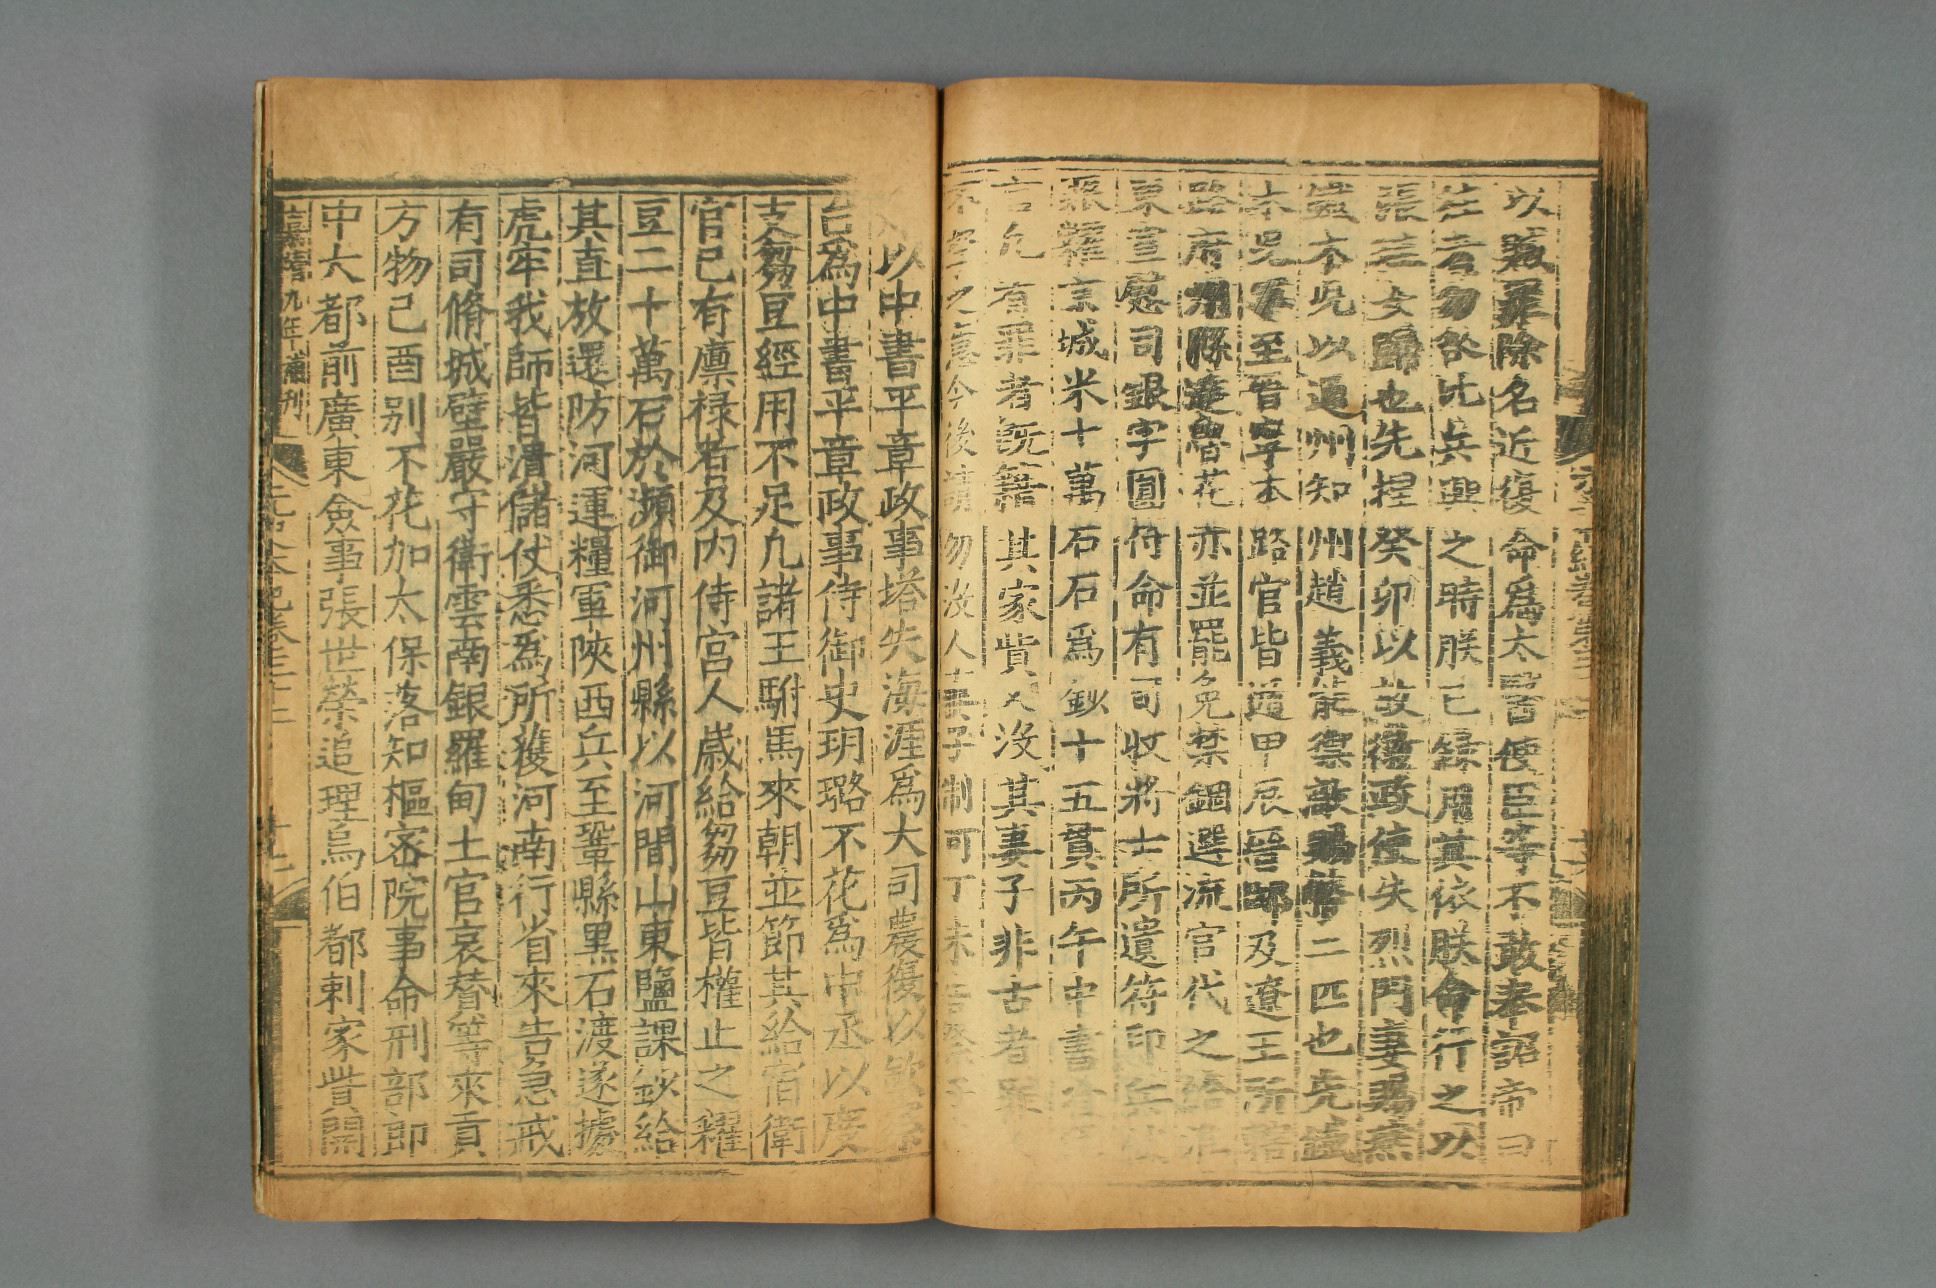 以贓罪除名近復命為太醫使臣等不敢奉詔帝曰
往者勿咎比兵興之時朕已錄用其依朕命行之以
張珪女歸也先捏癸卯以故政使失烈門妻賜燕
鐵木兒以通州知州趙義能禦敵賜幣二匹也先鐵
木兒軍至晉寧本路官皆遁甲辰晉邸及遼王所轄
路府州縣達魯花赤並罷免禁錮選流官代之給淮
東宣慰司銀字圓符命有司收將士所遺符印兵仗
賑糶京城米十萬石石為鈔十五貫丙午中書省
言凡有罪者既籍其家貲又沒其妻子非古者罪
不孥之意今後請勿沒人妻子制可丁未
以中書平章政事塔失海涯為大司農復以欽察
台為中書平章政事侍御史玥璐不花為中丞以度
支芻豆經用不足凡諸王駙馬來朝並節其給宿衛
官已有廩祿者及內侍宮人歲給芻豆皆權止之糴
豆二十萬石於瀕御河州縣以河間山東鹽課鈔給
其直放還防河運糧軍陝西兵至鞏縣黑石渡遂據
虎牢我師皆潰儲仗悉為所獲河南行省來告急戒
有司脩城壁嚴守衛雲南銀羅甸土官哀贊等來貢
方物己酉別不花加太保落知樞密院事命刑部郎
中大都前廣東僉事張世榮追理烏伯都剌家貲開
嘉靖九年補刊 元史本紀卷三十二 十七